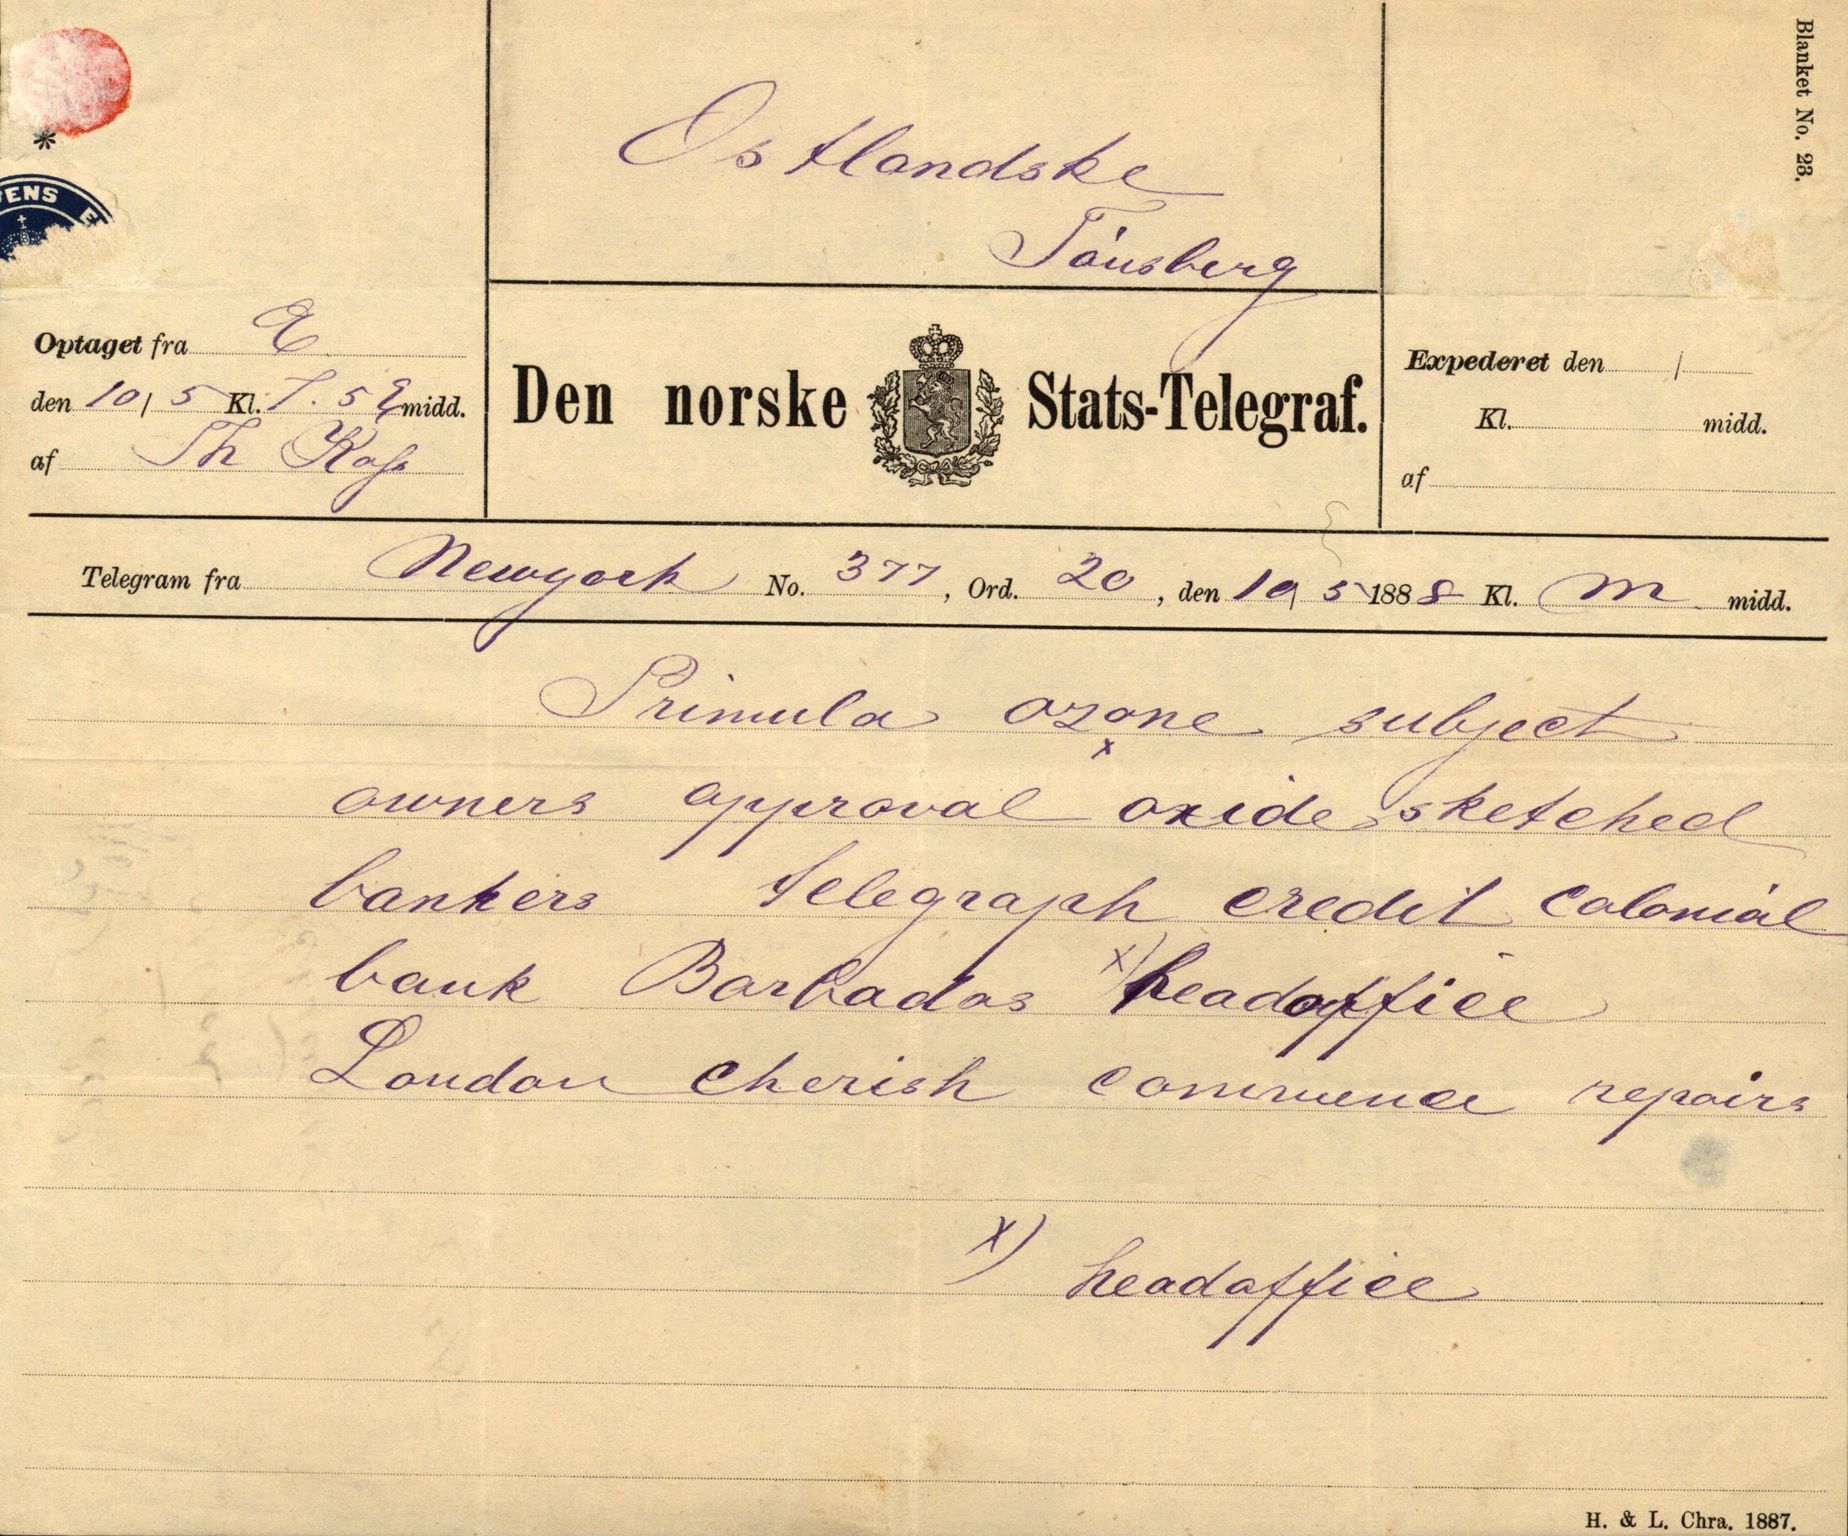 Blanket No. 23.
Ostlandske
Tönsberg
*
ENS
Optaget fra
den 10/5 Kl. 7.5 midd.
af Th
Den norske Stats-Telegraf.
Expederet den /
Kl. midd.
af
Telegram fra Newyork No. 377, Ord. 20, den 10/5 1888 Kl. M midd.
Primula ozone subject
x
owners approval oxide sketched
bankers telegraph credit colonial
bank Barbados x) headoffice
London cherish commence repairs
x) headoffice
H. & L. Chra. 1887.